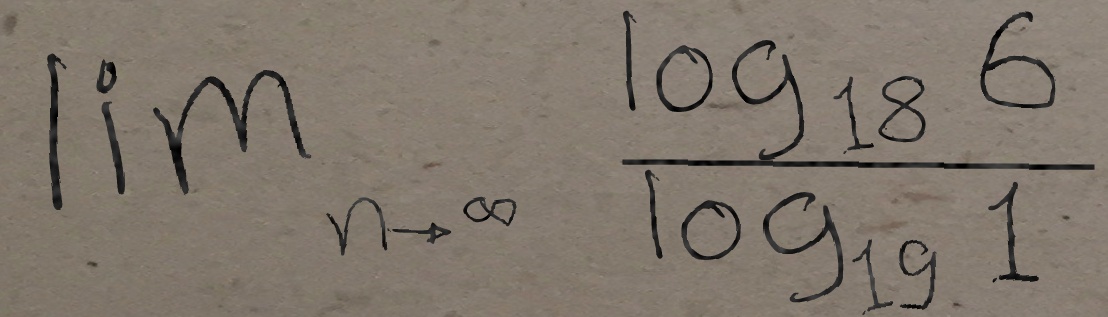 lim n→∞ log₁₈ 6 / log₁₉ 1